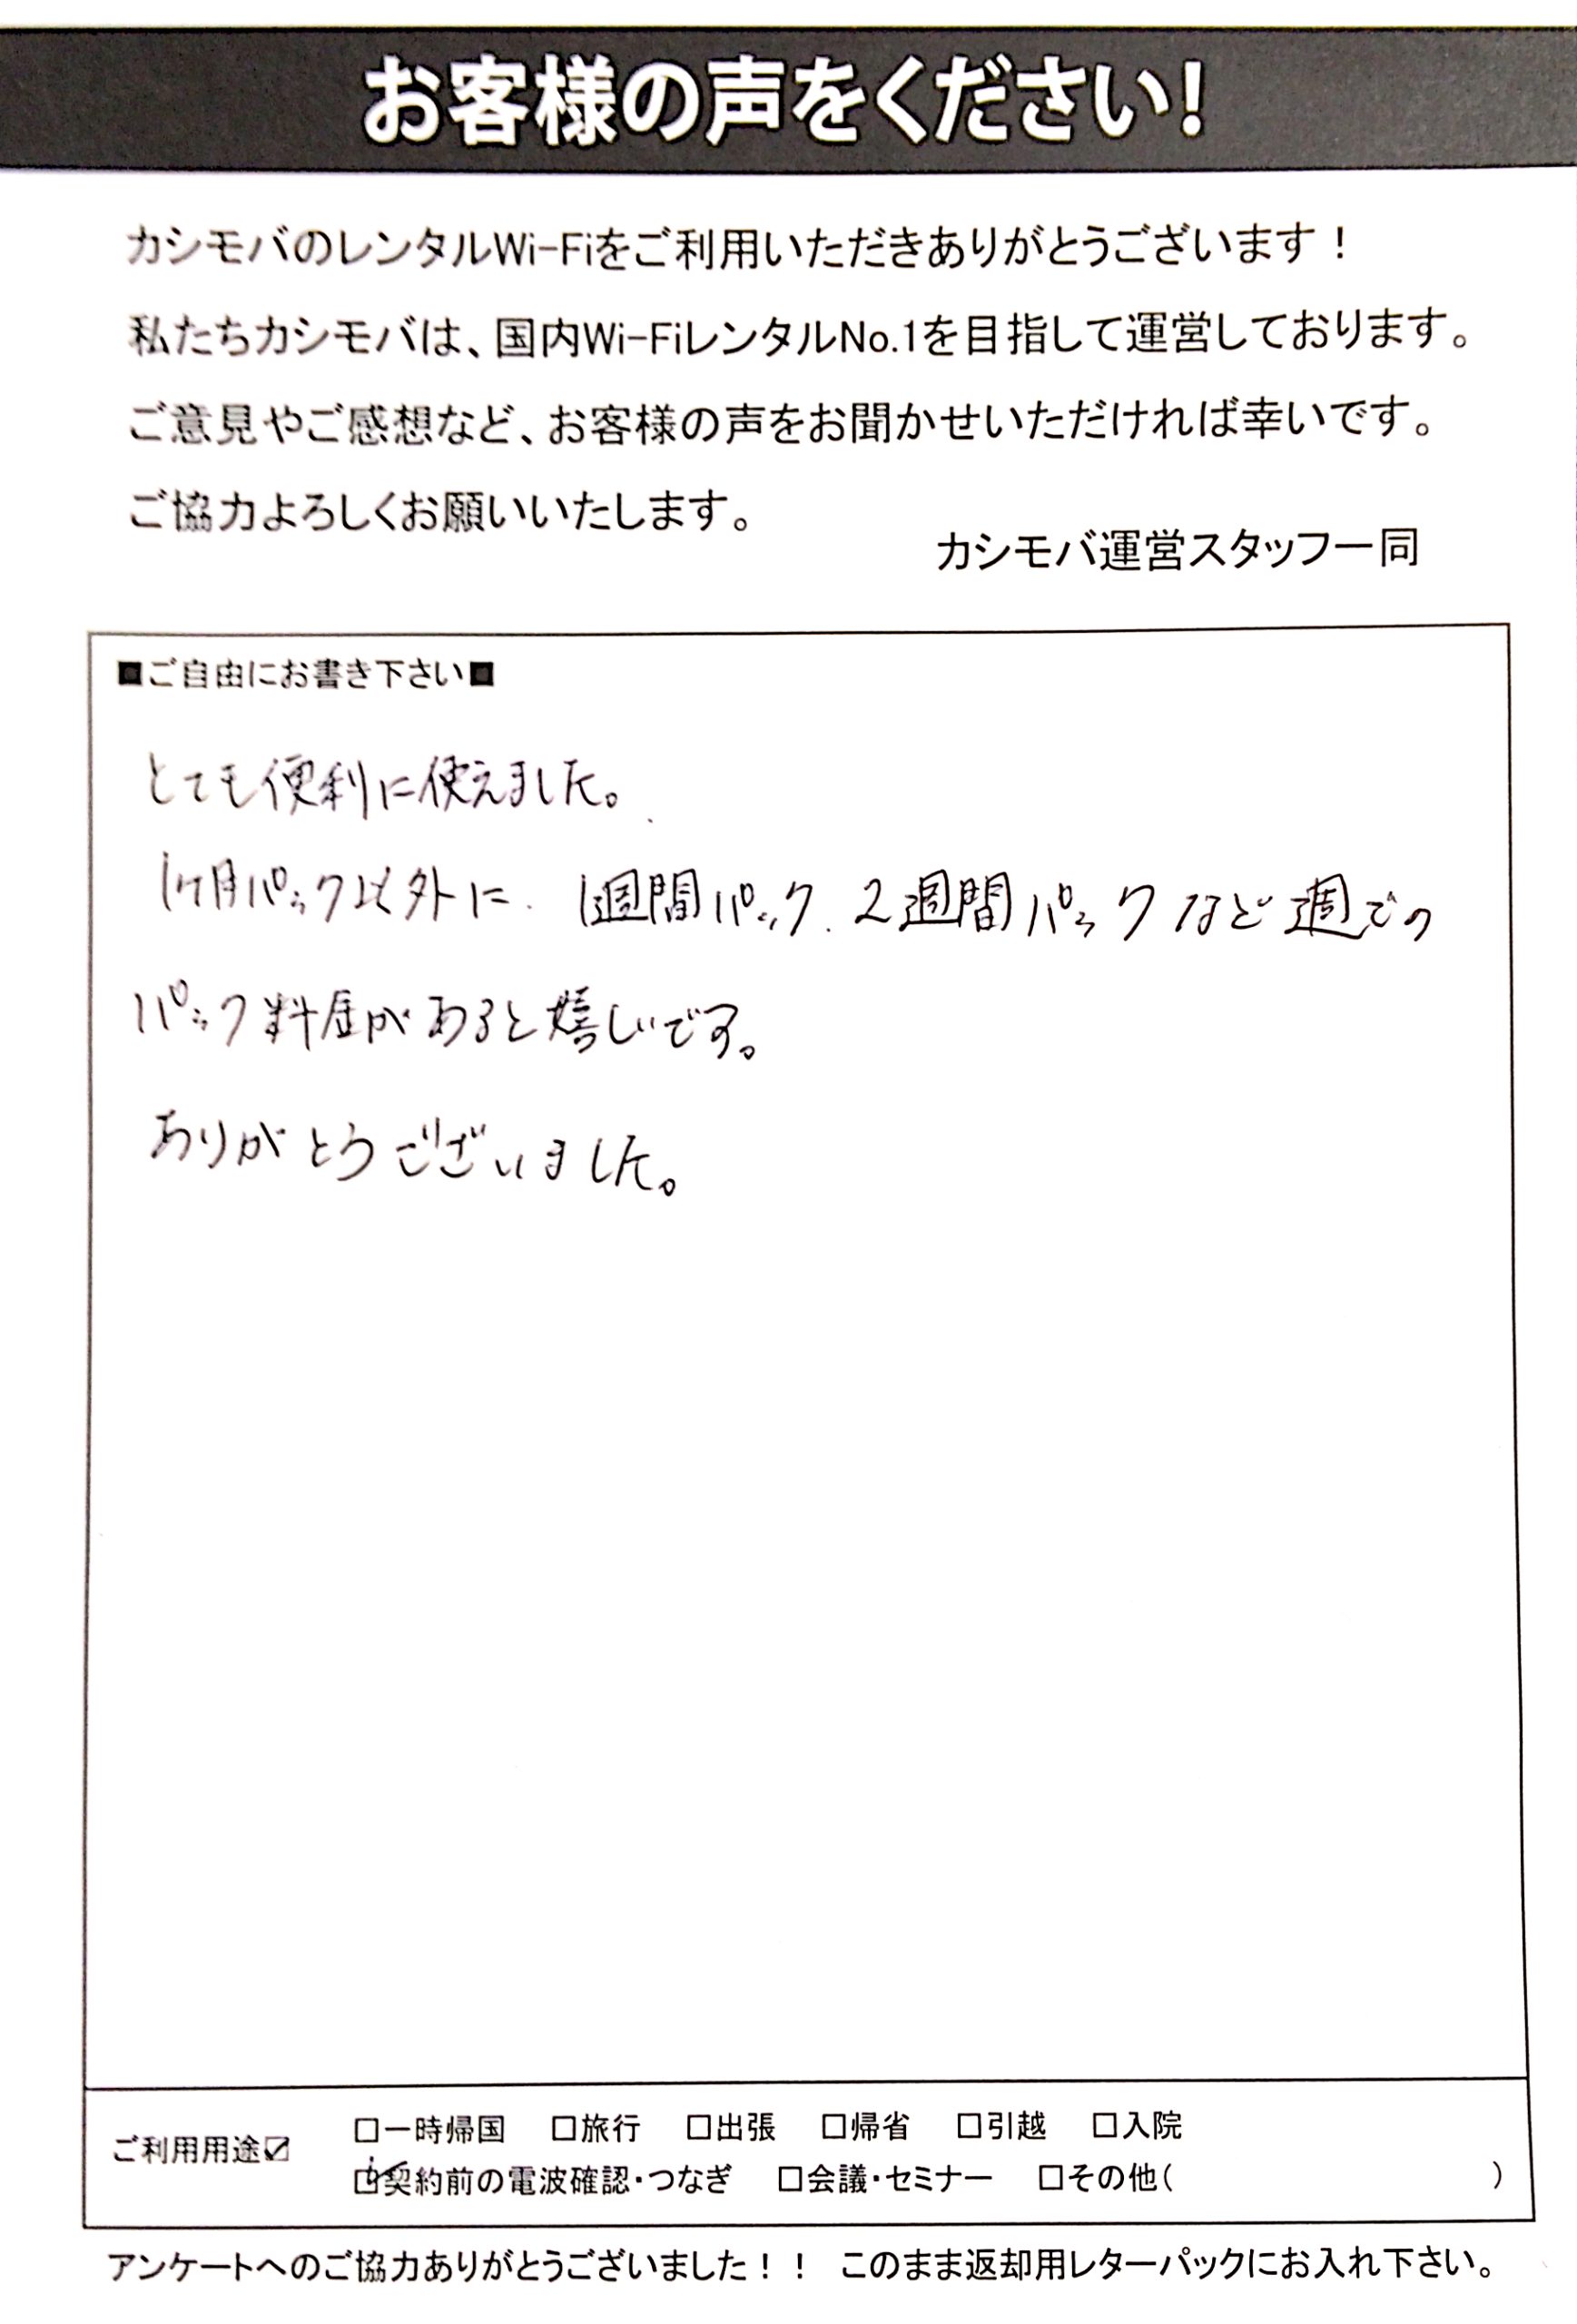 お客様の声をください!
カシモバのレンタルWi-Fiをご利用いただきありがとうございます！
私たちカシモバは、国内Wi-FiレンタルNo.1を目指して運営しております。
ご意見やご感想など、お客様の声をお聞かせいただければ幸いです。
ご協力よろしくお願いいたします。
カシモバ運営スタッフ一同
■ご自由にお書き下さい■
とても便利に使えました。
1ヶ月パック以外に、1週間パック、2週間パックなど週での
パック料金があると嬉しいです。
ありがとうございました。
ご利用用途☑ □一時帰国 □旅行 □出張 □帰省 □引越 □入院
☑契約前の電波確認・つなぎ □会議・セミナー □その他( )
アンケートへのご協力ありがとうございました！！ このまま返却用レターパックにお入れ下さい。